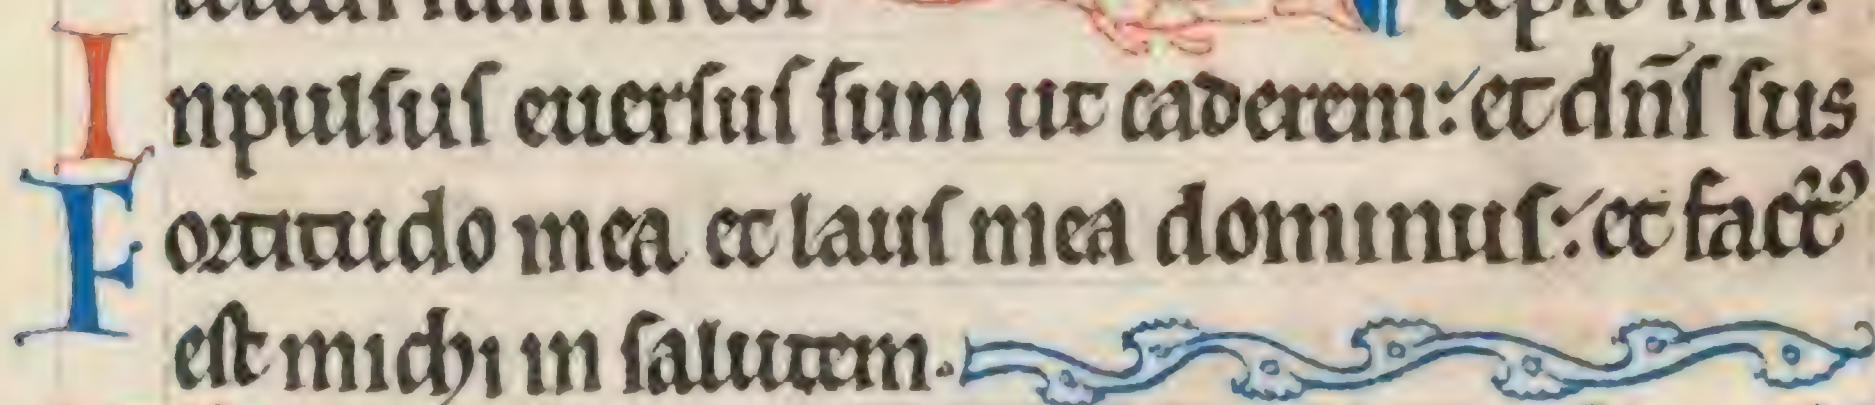 cepit me.
Inpulsus euersus sum ut caderem: et dn̄s sus
Fortitudo mea et laus mea dominus: et fact᷒
est michi in salutem.